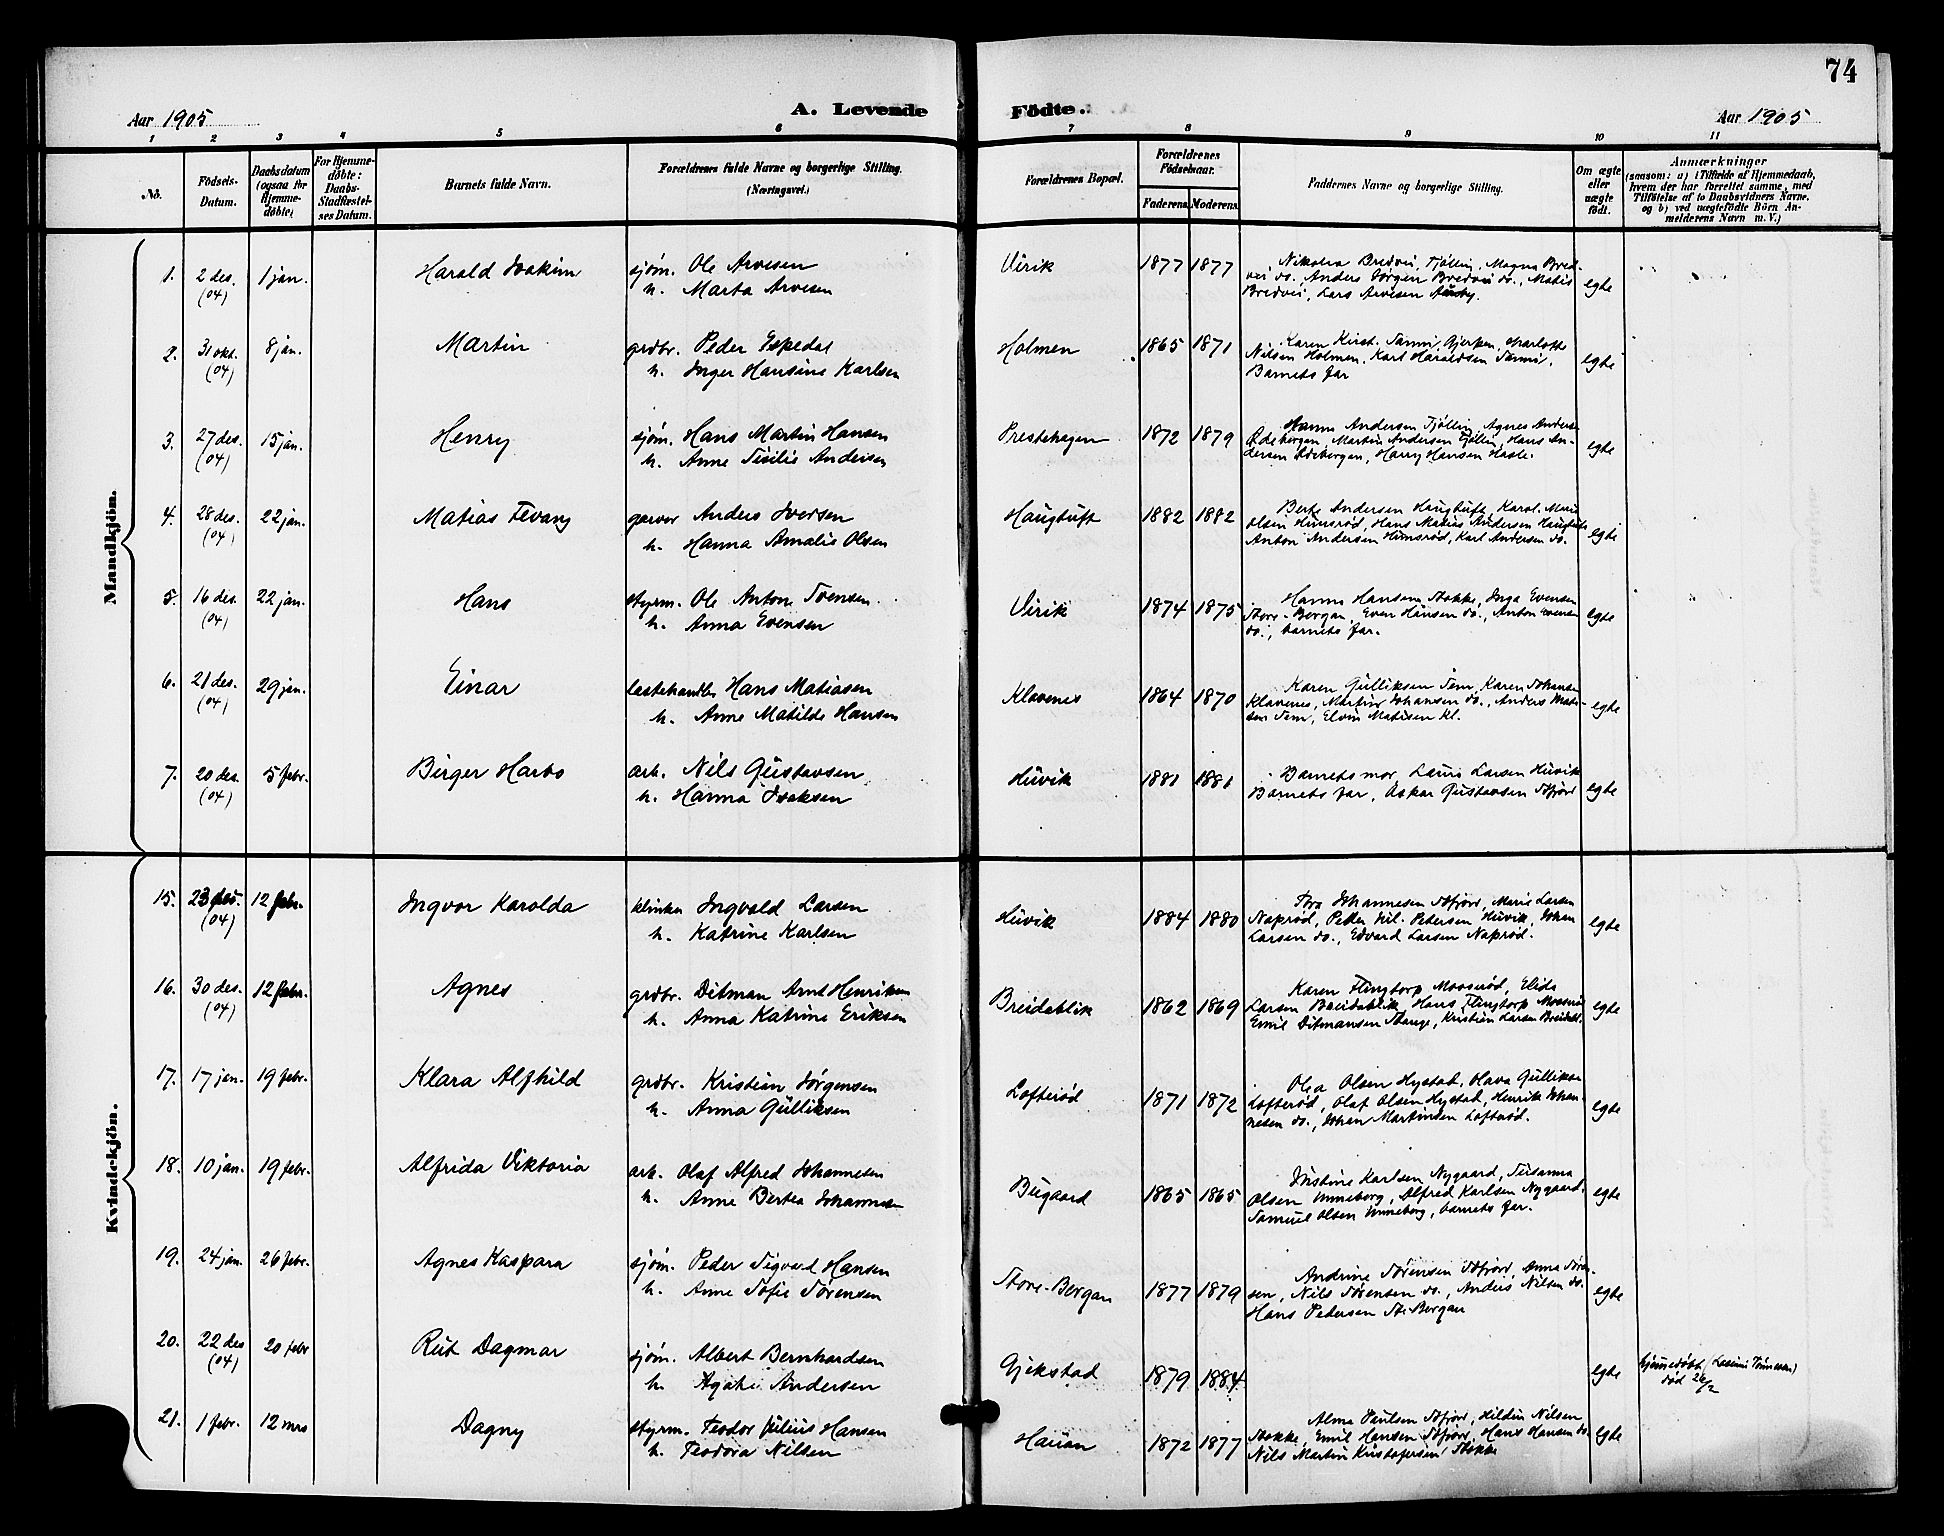 74
Aar 1905 A. Levende Födte. Aar 1905
1 2 3 4 5 6 7 8 9 10 11
No. Födsels-Datum. Daabsdatum (ogsaa for Hjemme-döbte) For Hjemme-döbte: Daabs-Stadfæstel-ses Datum. Barnets fulde Navn. Forældrenes fulde Navne og borgerlige Stilling. (Næringsvei.) Forældrenes Bopæl. Forældrenes Födselsaar. Faderens. Moderens. Faddernes Navne og borgerlige Stilling. Om ægte eller uægte födt. Anmærkninger (saasom: a) i Tilfælde af Hjemmedaab, hvem der har forrettet samme, med Tilföielse af to Daabsvidners Navne, og b) ved uægtefödte Börn An-melderens Navn m. V.)
Mandkjön.
1. 2 des. (04) 1 jan. Harald Joakim sjøm. Ole Arvesen
h. Marta Arvesen
Virik 1877 1877 Nikolea Bredvei, Tjølling, Magna Bred-
vei do., Anders Jørgen Bredvei do., Matis
Bredvei, Lars Arvesen
egte
2. 31 okt. (04) 8 jan. Martin grdbr. Peder Espedal
h. Inger Hansine Karlsen
Holmen 1865 1871 Karen Kirst. Gjerpen, Charlotte
Nilsen Holmen, Karl Haraldsen
Barnets far
egte
3. 27 des. (04) 15 jan. Henry sjøm. Hans Martin Hansen
h. Anne Sesilie Andersen
Prestehagen 1872 1879 Hanna Andersen Tjølling, Agnes Anders
Ødebergan, Martin Andersen Tjølling, Hans An-
dersen Ødebergan, Harry Hansen Hasle.
egte
4. 28 des. (04) 22 jan. Matias Fevang garver Anders Iversen
h. Hanna Amalie Olsen
Haugtuft 1882 1882 Berte Andersen Haugtuft, Karol. Marie
Olsen Himsrød, Hans Matias Andersen Haugtuft
Anton Andersen Himsrød, Karl Andersen do.
egte
5. 16 des. (04) 22 jan. Hans styrm. Ole Anton Svensen
h. Anna Evensen
Virik 1874 1875 Hanna Hansen Stokke, Inga Evensen
Store-Bergan, Even Hansen do., Anton Evensen
do., barnets far.
egte
6. 21 des. (04) 29 jan. Einar Hans Matiasen
h. Anne Matilde Hansen
Klavenes 1864 1870 Karen Gulliksen Sem, Karen Johansen
Klavenes, Martin Johansen do., Anders Mati-
sen Sem, Elvin Matisen Kl.
egte
7. 20 des. (04) 5 febr. Birger Harbo arb. Nils Gustavsen
h. Hanna Isaksen
Huvik 1881 1881 Barnets mor, Laura Larsen Huvik
Barnets far, Oskar Gustavsen Sfjord
egte
Kvindekjön.
15. 23 des. (04) 12 febr. Ingvor Karolda klinker Ingvald Larsen
h. Katrine Karlsen
Huvik 1884 1880 Tora Johannesen Sfjord, Marie Larsen
Naprød, Petter Vil. Petersen Huvik, Johan
Larsen do., Edvard Larsen Naprød.
egte
16. 30 des. (04) 12 febr. Agnes grdbr. Ditman Arnt Henriksen
h. Anna Katrine Eriksen
Breidablik 1862 1869 Karen Flingtorp Moaserød, Elida
Larsen Breidablik, Hans Flingtorp Moaserød
Emil Ditmansen, Kristian Larsen Breidabl.
egte
17. 17 jan. 19 febr. Klara Alfhild grdbr. Kristian Jørgensen
h. Anna Gulliksen
Lofterød 1871 1872 Olea Olsen Hystad, Olava Gulliksen
Lofterød, Olaf Olsen Hystad, Henrik Johan-
nesen do., Johan Martinsen Lofterød.
egte
18. 10 jan. 19 febr. Alfrida Viktoria arb. Olaf Alfred Johannesen
h. Anne Bertea Johannesen
Bugaard 1865 1865 Justine Karlsen Nygaard, Susanna
Olsen Unneberg, Alfred Karlsen Nygaard,
Samuel Olsen Unneberg, barnets far.
egte
19. 24 jan. 26 febr. Agnes Kaspara sjøm. Peder Sigvard Hansen
h. Anne Sofie Sørensen
Store-Bergan 1877 1879 Andrine Sørensen Sfjord, Anna Søren-
sen, Nils Sørensen do., Anders Nilsen do.
Hans Pedersen St. Bergan
egte
20. 22 des (04) 20 febr Rut Dagmar sjøm. Albert Bernhardsen
h. Agate Andersen
Gjekstad 1879 1884 egte hjemmedøbt
død 26/2
21. 1 febr. 12 mrs Dagny styrm. Teodor Julius Hansen
h. Teodora Nilsen
Hauan 1872 1877 Alma Paulsen Sfjord, Hildin Nilsen
Stokke, Emil Hansen Sfjord, Hans Hansen do.
Nils Martin Kristofersen, Stokke
egte